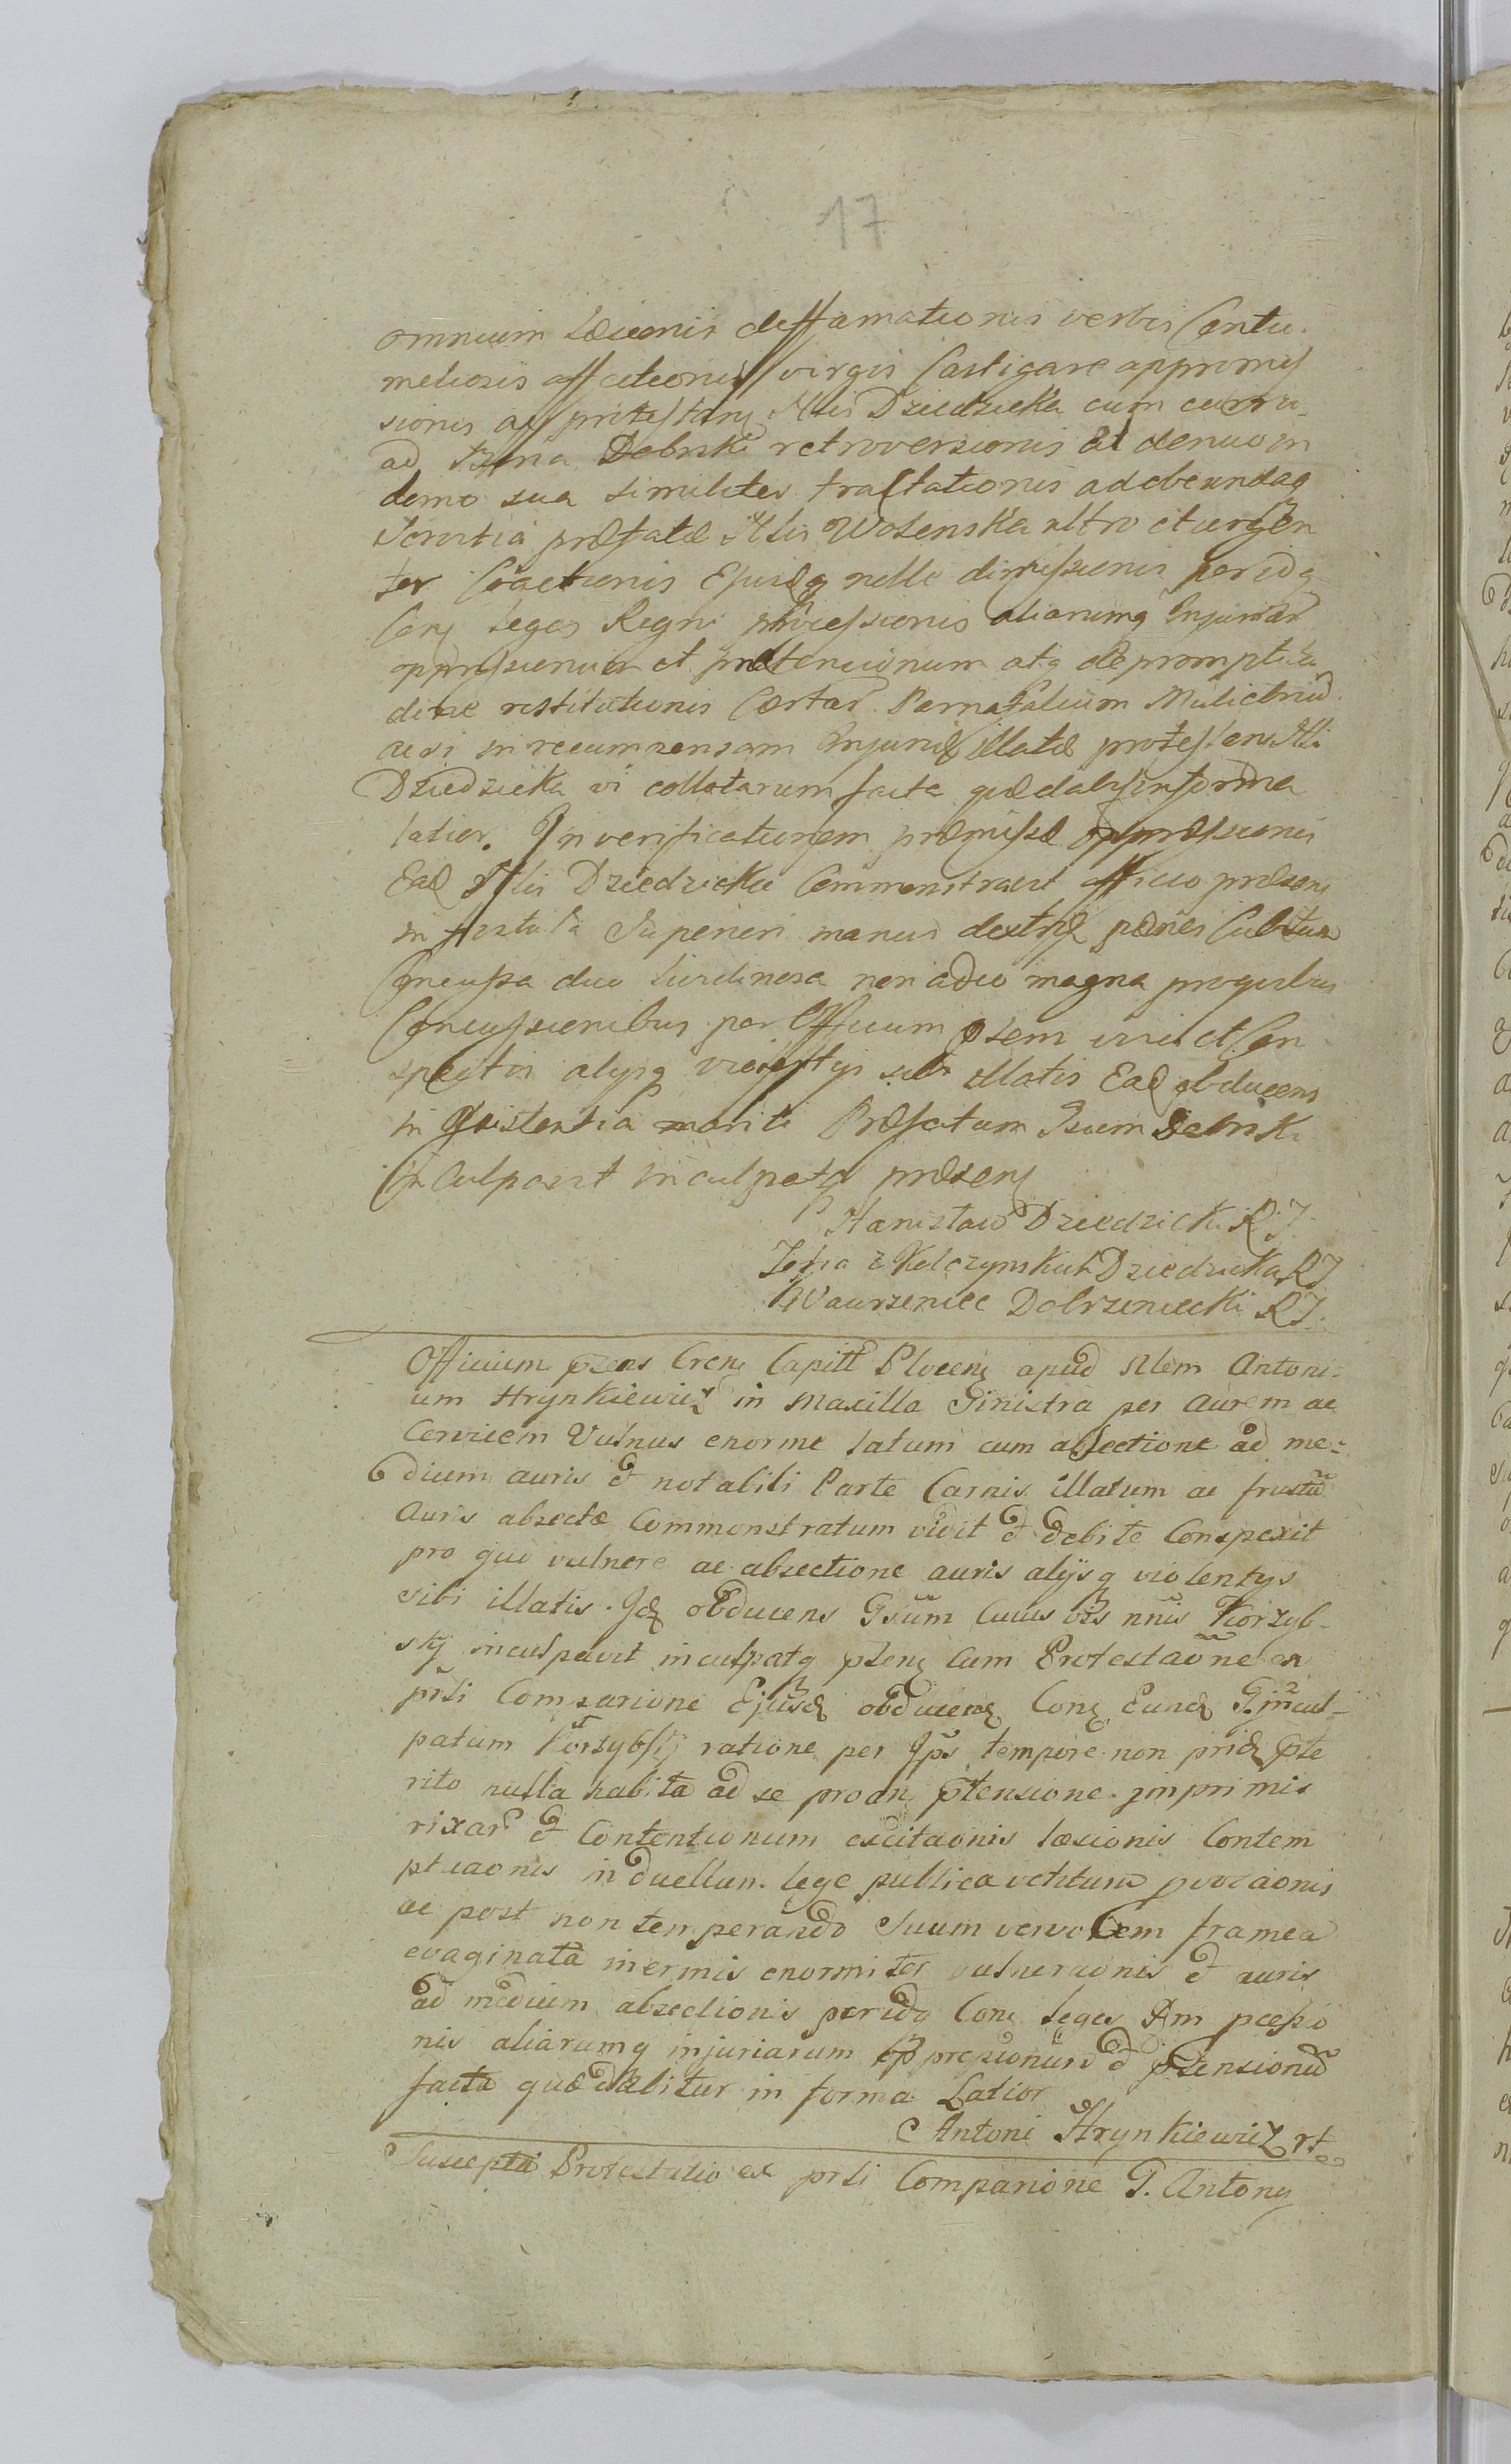 17
omnium Læsionis deffamationis verbis Contu-
meliosis affectionis virgis Castigare appromis
sionis
ad retroversionis et denuo in
domo sua similiter tractationis ad obeundaq
Servitia præfatæ Nlis Wolenska ultro et urgen
ter Coactionis Ejusdq nolle dimissionis peridq
Conʒ Leges Regni processionis aliarumq Injuriar
oppressionum et prætensionum atq de promptitu
dine restitutionis Certar. Muliebriu
ac si in recumpensam Injuriæ illatæ protestens Nli
Dziedzicka vi collatarum facta quæ dabit in forma
latior. In verificationem præmissæ oppressionis
Ead Nlis Dziedzicka Commonstravit officio præsenʒ
in superiori manus dextræ penes Cubitum
Concussa duo non adeo magna pro quibus
Concussionibus per Officium psem visis et Con
spectis alysq violentys sibi illatis Ead obducens
in assistentia mariti Præfatum Gsum Debski
inculpavit inculpatq præsenʒ
Stanisław Dziedzicki RJ
Zofia z Kolczynskich Dziedzicka RJ
Wawrzeniec Dobrzeniecki RJ.
Officium psens Crenʒ Capitl Plocenʒ apud Nlem Antoni-
um Hrynkiewicz in Maxilla Sinistra per Aurem ac
Cervicem Vulnus enorme latum cum absectione ad me-
dium auris et notabili Parte Carnis illatum ac frustu
Auris absectæ Commonstratum vidit et debite Conspexit
pro quo vulnere ac absectione auris alysq violentys
sibi illatis. Idʒ obducens Gsum Cuius nnis Korzyb-
sky inculpavit inculpatq psenʒ Cum Protestaone ex
prsti Comparione Ejusdʒ obducenʒ Conʒ Eundʒ G. incul-
patum Korzybsky ratione per Ips tempore non pridʒ pte
rito nulla habita ad se proanʒ ptensione imprimis
rixar et Contentionum excitaonis læsionis Contem
ptuaonis in duellum lege publica vetitum provocaonis
ac post non temperando Suum framea
evaginata inermis enormiter vulneraonis et auris
ad medium absectionis peridq Conʒ leges Rm
nis aliarumq injuriarum oppresionum et ptensionu
facta quæ dabitur in forma Latior
Antoni Hrynkiewicz
Suscepta Protestatio ex prsti Comparione G. Antony